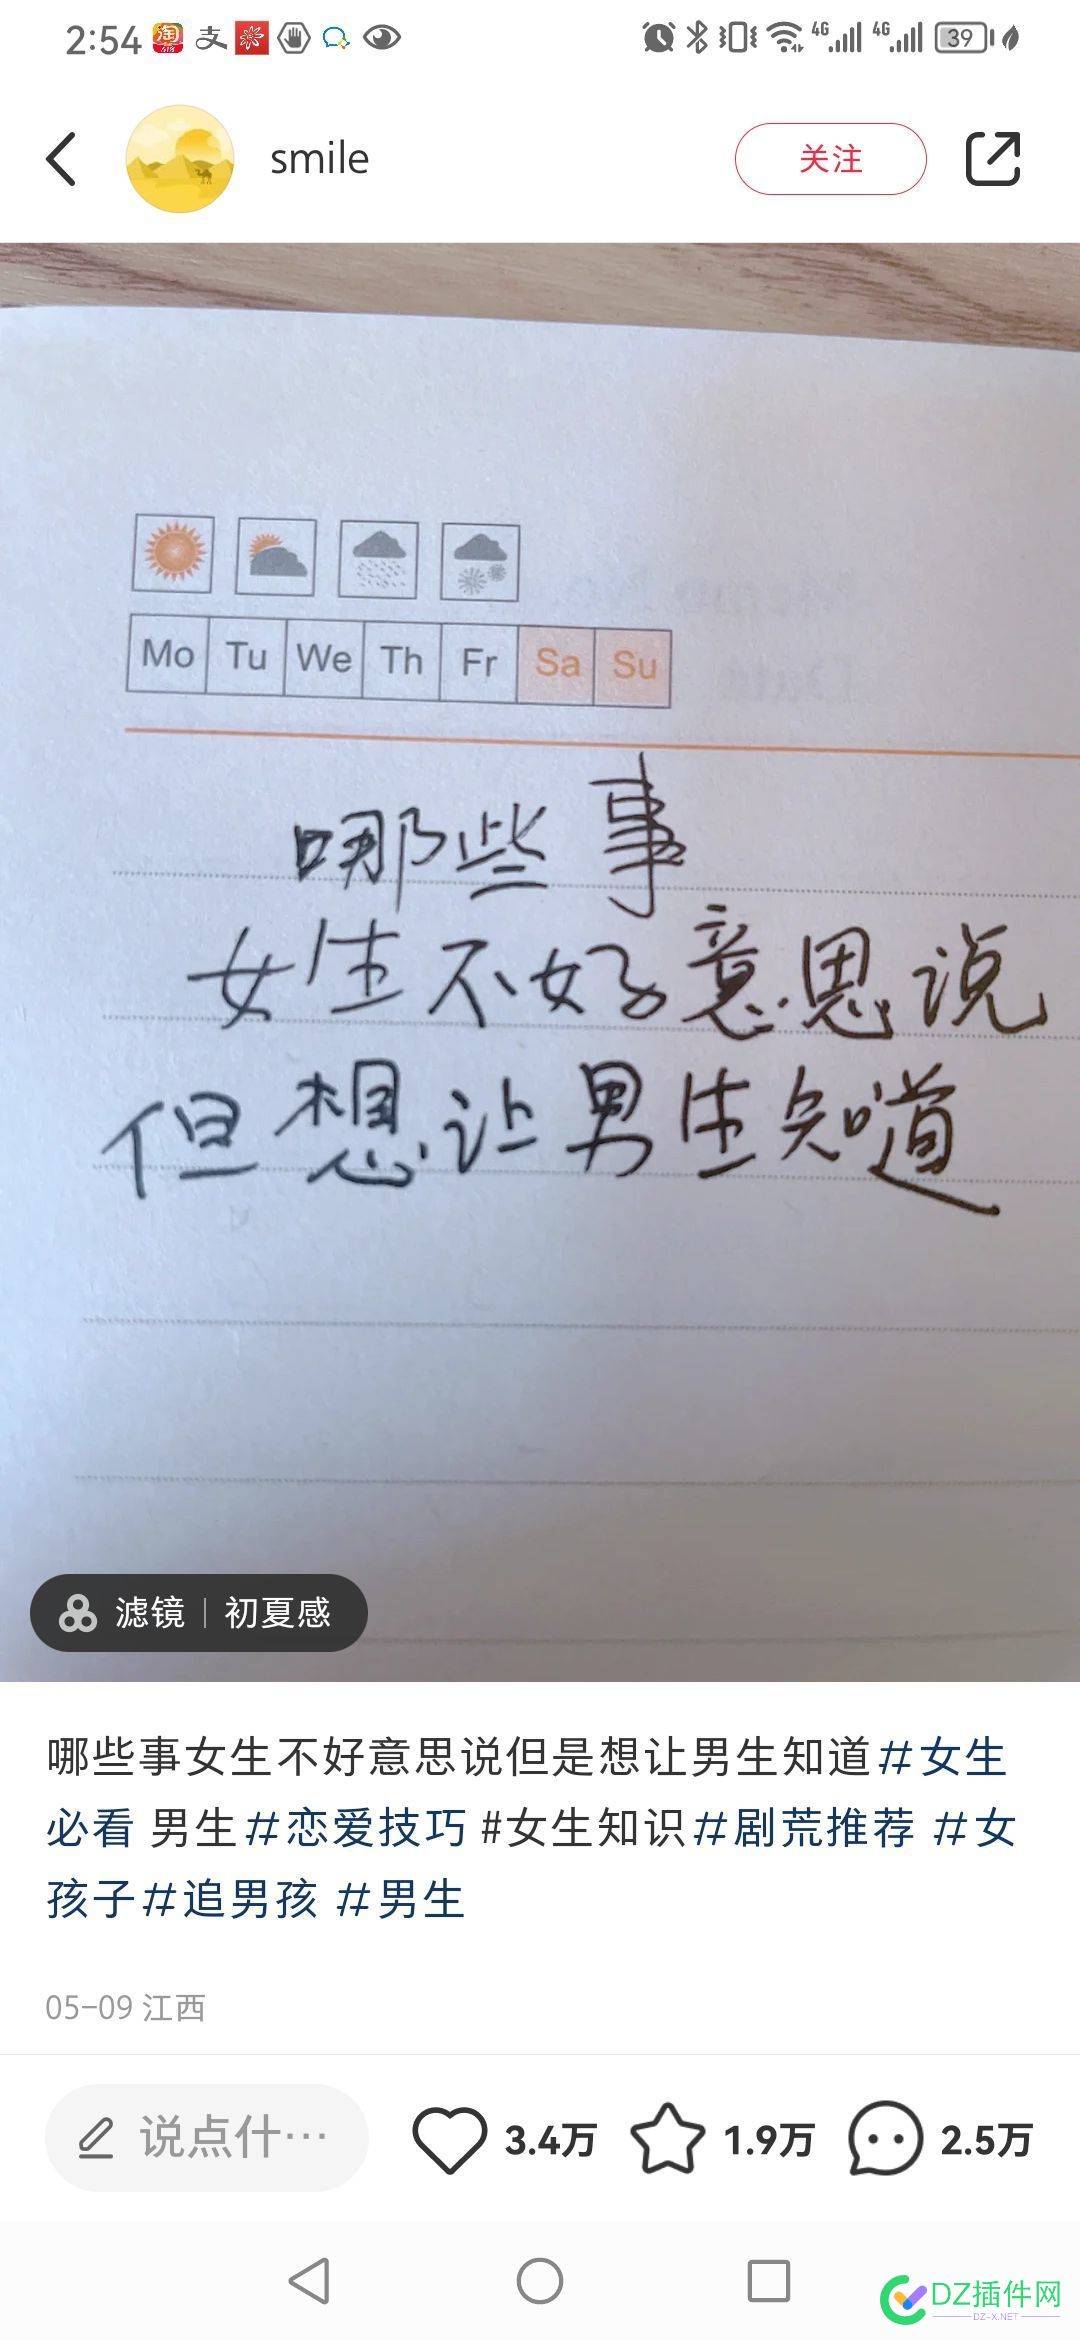 2:54 淘 支 4G 4G 39
smile 关注
Mo Tu We Th Fr Sa Su
哪些事
女生不好意思说
但想让男生知道
滤镜 | 初夏感
哪些事女生不好意思说但是想让男生知道#女生
必看 男生#恋爱技巧 #女生知识#剧荒推荐 #女
孩子#追男孩 #男生
05-09 江西
说点什… 3.4万 1.9万 2.5万
DZ插件网
DZ-X.NET